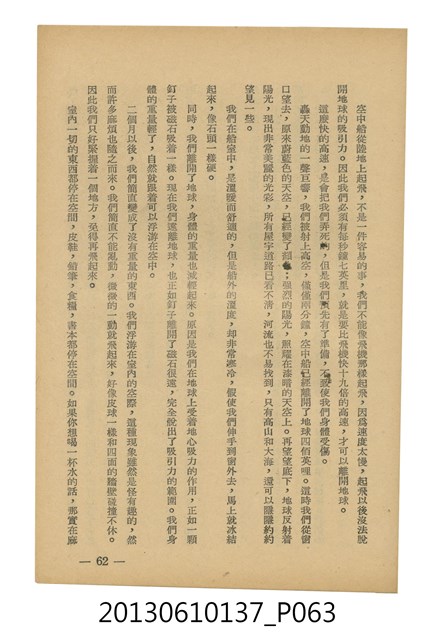 空中船從陸地上起飛，不是一件容易的事，我們不能像飛機那樣起飛，因為速度太慢，起飛以後沒法脫
開地球的吸引力。因此我們必須有每秒鐘七英里，就是要比飛機快十九倍的高速，才可以離開地球。
這麼快的高速，是會把我們弄死的，但是我們預先有了準備，不致使我們身體受傷。
轟天動地的一聲巨響，我們被射上高空，僅僅兩分鐘，空中船已經離開了地球四佰英哩。這時我們從窗
口望去，原來蔚藍色的天空，已經變了顏色；強烈的陽光，照耀在漆暗的天空上。再望望底下，地球反射着
陽光，現出非常美麗的光彩，所有屋宇道路已看不清，河流也不易找到，只有高山和大海，還可以隱隱約約
望見一些。
我們在船室中，是溫暖而舒適的，但是船外的溫度，却非常寒冷，假使我們伸手到窗外去，馬上就冰結
起來，像石頭一樣硬。
同時，我們離開了地球，身體的重量也減輕起來。原因是我們在地球上受着地心吸力的作用，正如一顆
釘子被磁石吸着一樣。現在我們遠離地球，也正如釘子離開了磁石很遠，完全脫出了吸引力的範圍。我們身
體的重量輕了，自然就跟着可以浮游在空中。
二個月以後，我們簡直變成了沒有重量的東西。我們浮游在室內的空際，這種現象雖然是怪有趣的，然
而許多麻煩也隨之而來。我們簡直不能亂動，微微的一動就飛起來，好像皮球一樣和四面的牆壁碰撞不休。
因此我們只好緊握着一個地方，免得再飛起來。
室內一切的東西都停在空間，皮鞋，鉛筆，食糧，書本都停在空間。如果你想喝一杯水的話，那實在麻
— 62 —
20130610137_P063